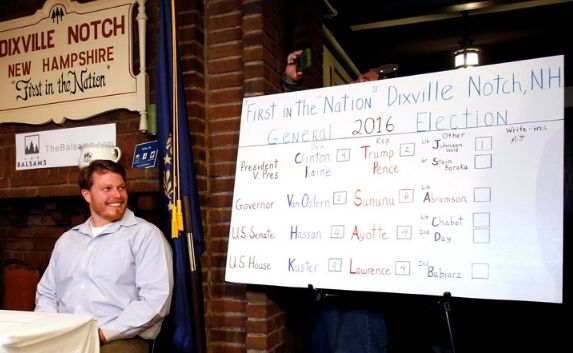 DIXVILLE NOTCH
NEW HAMPSHIRE
"First in the Nation"
TheBalsams.com
BALSAMS
"First in the "Nation" Dixville Notch, NH
General 2016 Election
Dem Rep Other Write-ins
President Clinton 4 Trump 2 Lib Johnson 1
V. Pres. Kaine Pence Weld
Gr Stein
Baraka
Governor Van Ostern 2 Sununu 6 Lib Abramson
U.S. Senate Hassan 4 Ayotte 4 Lib Chabot
Ind Day
U.S. House Kuster 4 Lawrence 4 Ind Babiarz